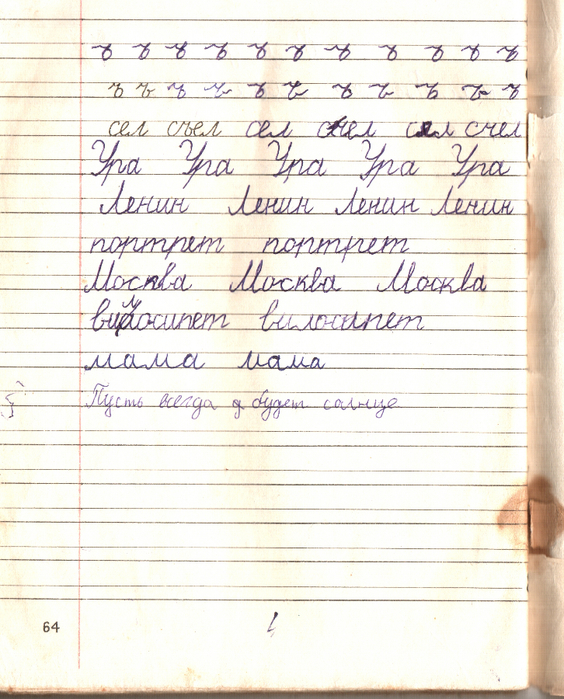 ъ ъ ъ ъ ъ ъ ъ ъ ъ ъ ъ
ъ ъ ъ ъ ъ ъ ъ ъ ъ ъ ъ
сел съел сел съел сел счел
Ура Ура Ура Ура Ура
Ленин Ленин Ленин Ленин
портрет портрет
Москва Москва Москва
вилосипет вилосипет
мама мама
Пусть всегда будет солнце
64